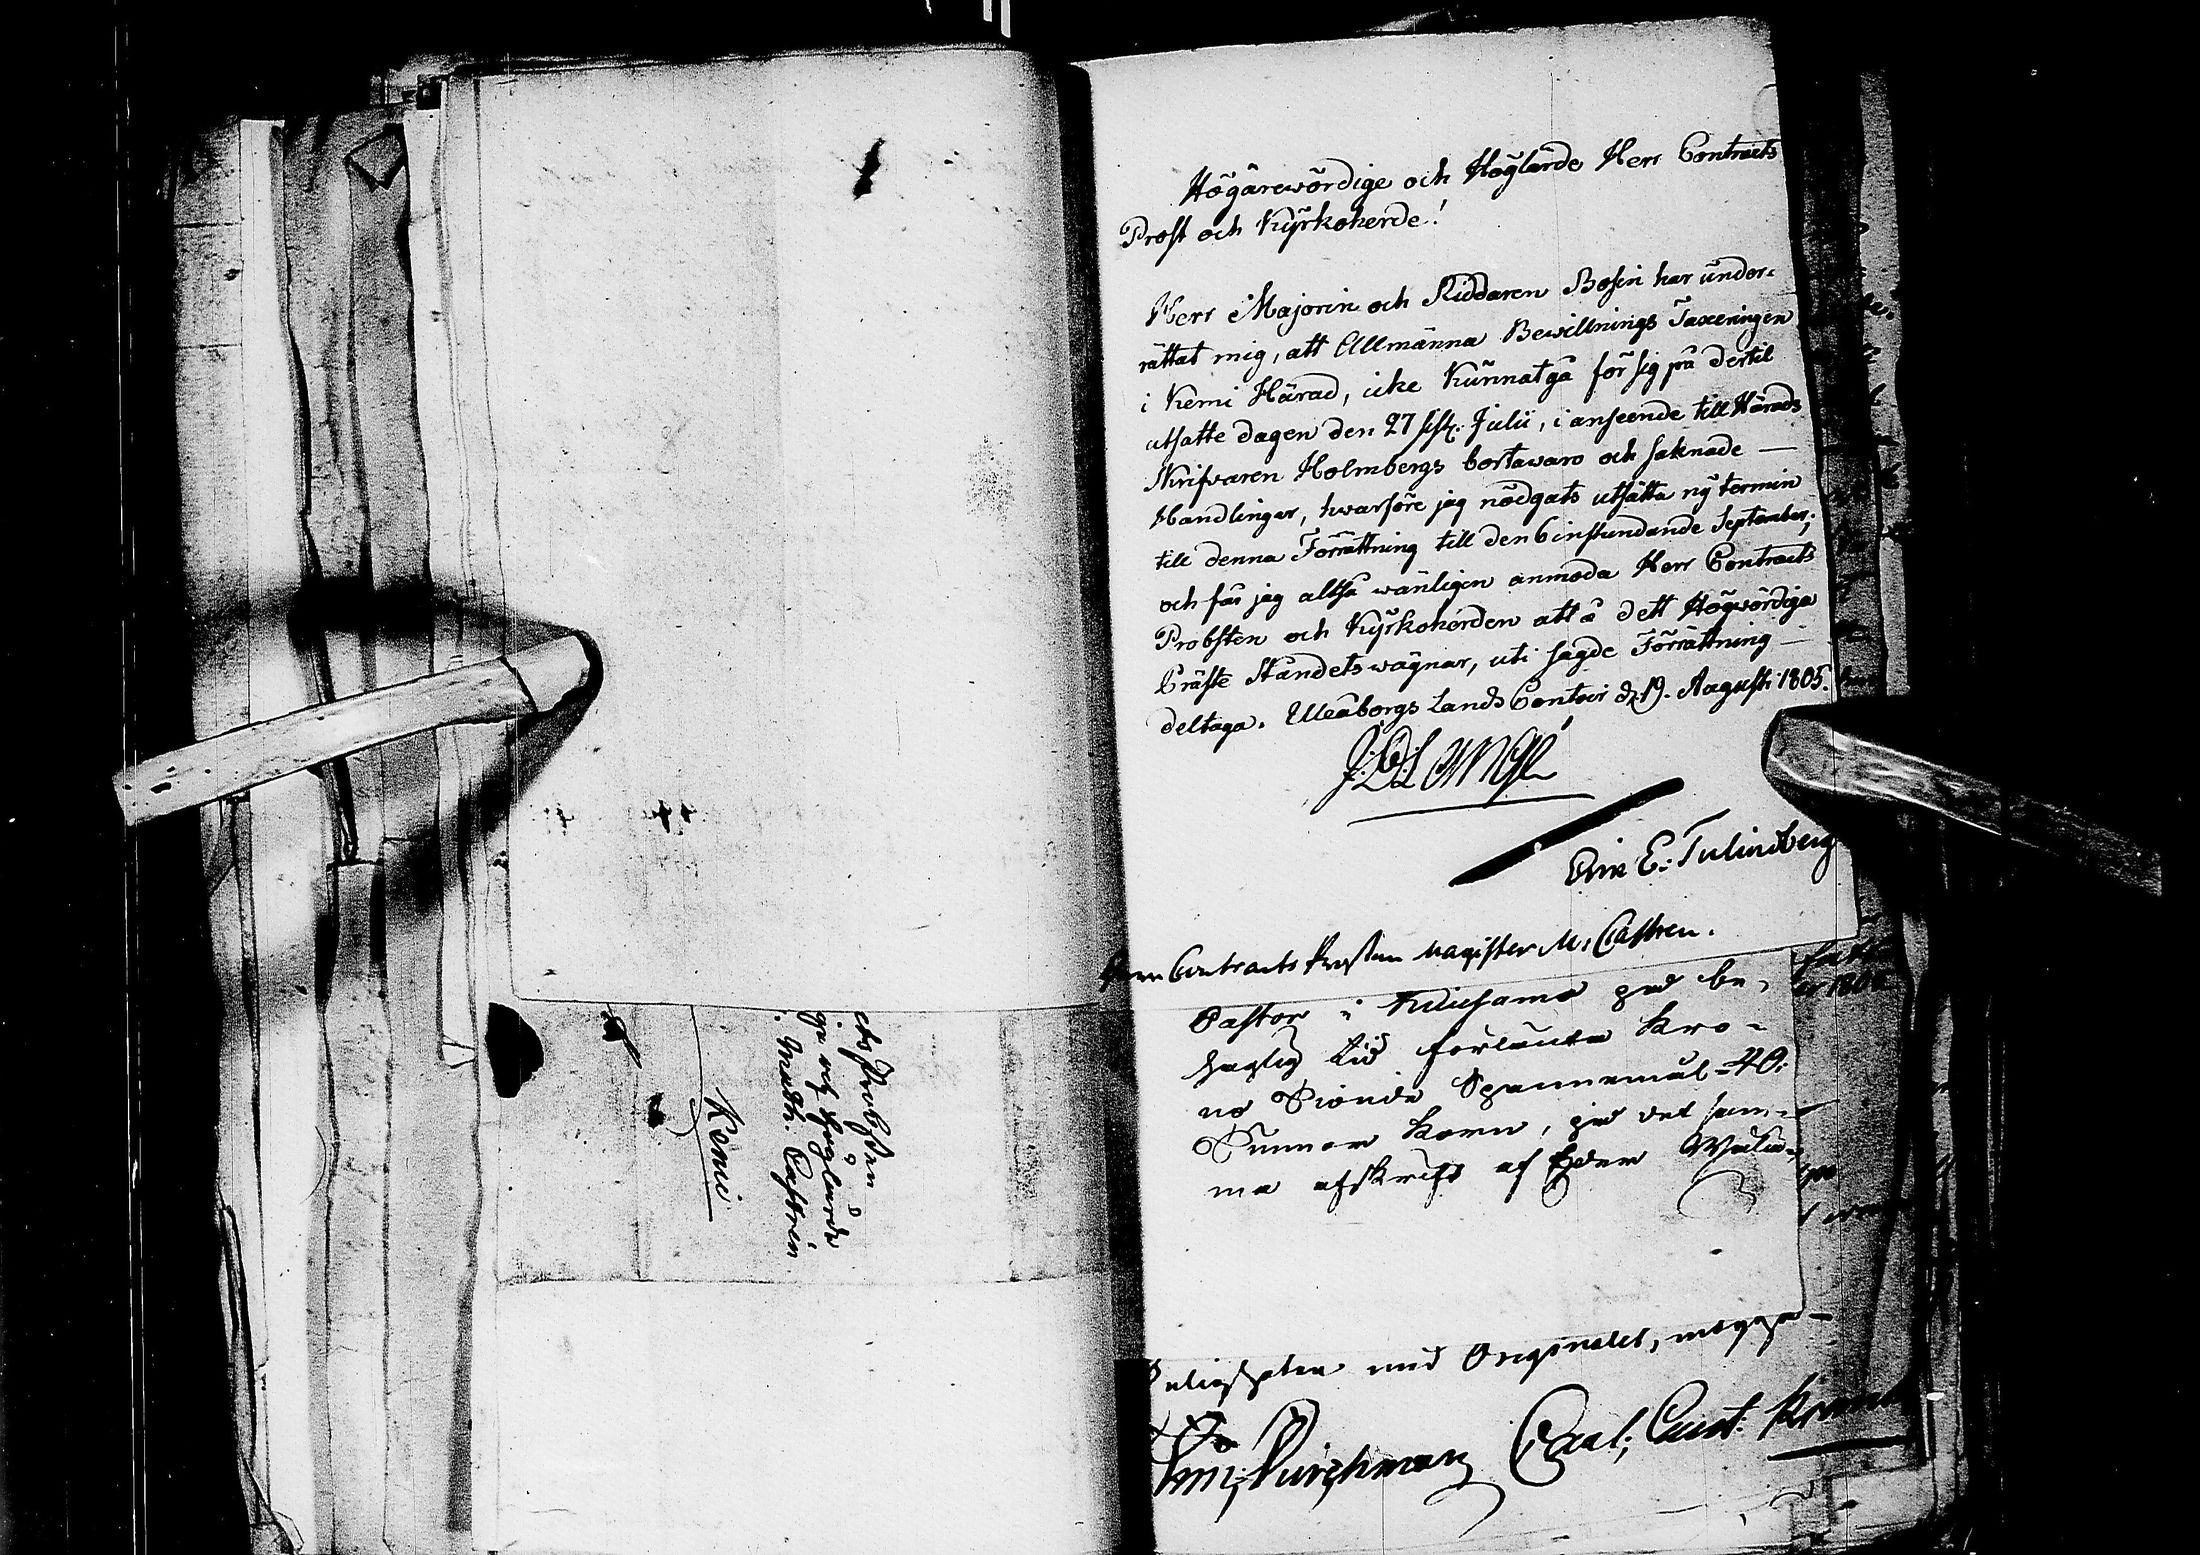 Högärewördige och Höglärde Herr Contracts
Prost och Kyrkoherde!
Herr Majoren och Riddaren Bosin har under-
rättat mig, att Allmänna Bewillnings Taxeringen
i Kemi Härad, icke kunnat gå för sig på dertil
utsatte dagen den 27 sistl. Julii, i anseende till Härads
Skrifvaren Holmbergs bortawaro och saknade —
Handlingar, hwarföre jag nödgats utsätta ny termin
till denna Förrättning till den 6 instundande September;
och får jag altså wänligen anmoda Herr Contracts
Probsten och Kyrkoherden att å dett Högwördiga
Präste Ståndets wägnar, uti sagde Förrättning —
deltaga. Uleåborgs Lands Contoir d. 19. Augusti 1805.
J. D. Lange
Eric E: Tulindberg
Contracts Prosten Magister M: Castren.
Pastor i Kuusamo på be-
haglig tid förlänta Kro-
no Tionde Spannemål - 40.
Tunnor Korn, på det sam-
ma afskrift af
Originalet,
Carl; Gust:
cts Probsten
och Höglärde
Math. Castrén
Kemi